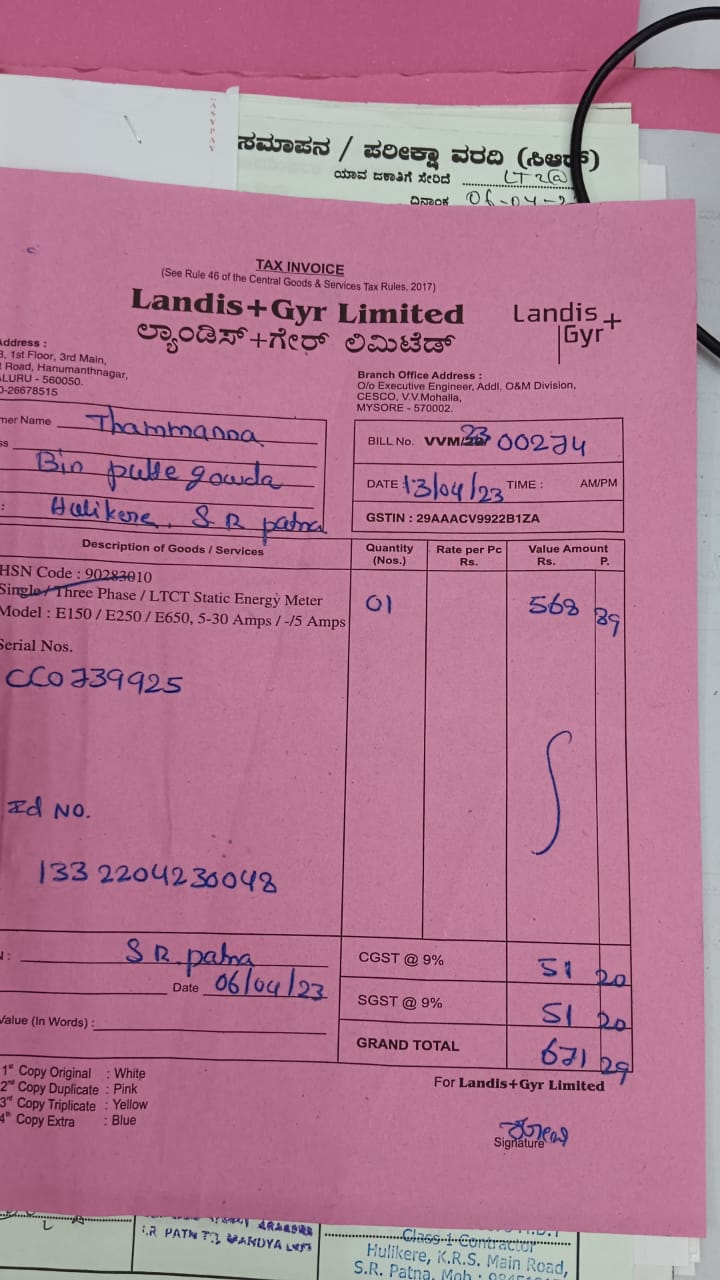 ಸಮಾಪನ / ಪರೀಕ್ಷಾ ವರದಿ (ಸಿಆರ್)
ಯಾವ ಜಕಾತಿಗೆ ಸೇರಿದೆ LT 2(a)
ದಿನಾಂಕ 06-04-2
TAX INVOICE
(See Rule 46 of the Central Goods & Services Tax Rules, 2017)
Landis+Gyr Limited
ಲ್ಯಾಂಡಿಸ್+ಗೇರ್ ಲಿಮಿಟೆಡ್
Landis+
Gyr
Address :
1st Floor, 3rd Main,
Road, Hanumanthnagar,
LURU - 560050.
0-26678515
Branch Office Address :
O/o Executive Engineer, Addl. O&M Division,
CESCO, V.V.Mohalla,
MYSORE - 570002.
mer Name Thammanna
ss Bin putte gowda
: Hulikere, S R patna
BILL No. VVM/23 00274
DATE : 13/04/23 TIME : AM/PM
GSTIN : 29AAACV9922B1ZA
Description of Goods / Services
Quantity (Nos.)
Rate per Pc Rs.
Value Amount Rs. P.
HSN Code : 90283010
Single / Three Phase / LTCT Static Energy Meter
Model : E150 / E250 / E650, 5-30 Amps / -/5 Amps
01 568 89
Serial Nos.
CC0739925
Id NO.
1332204230048
: S R. patna
Date 06/04/23
Value (In Words) :
CGST @ 9% 51 20
SGST @ 9% 51 20
GRAND TOTAL 671 29
1st Copy Original : White
2nd Copy Duplicate : Pink
3rd Copy Triplicate : Yellow
4th Copy Extra : Blue
For Landis+Gyr Limited
Signature
Class-1 Contractor
Hulikere, K.R.S. Main Road,
S.R. Patna, Mob :